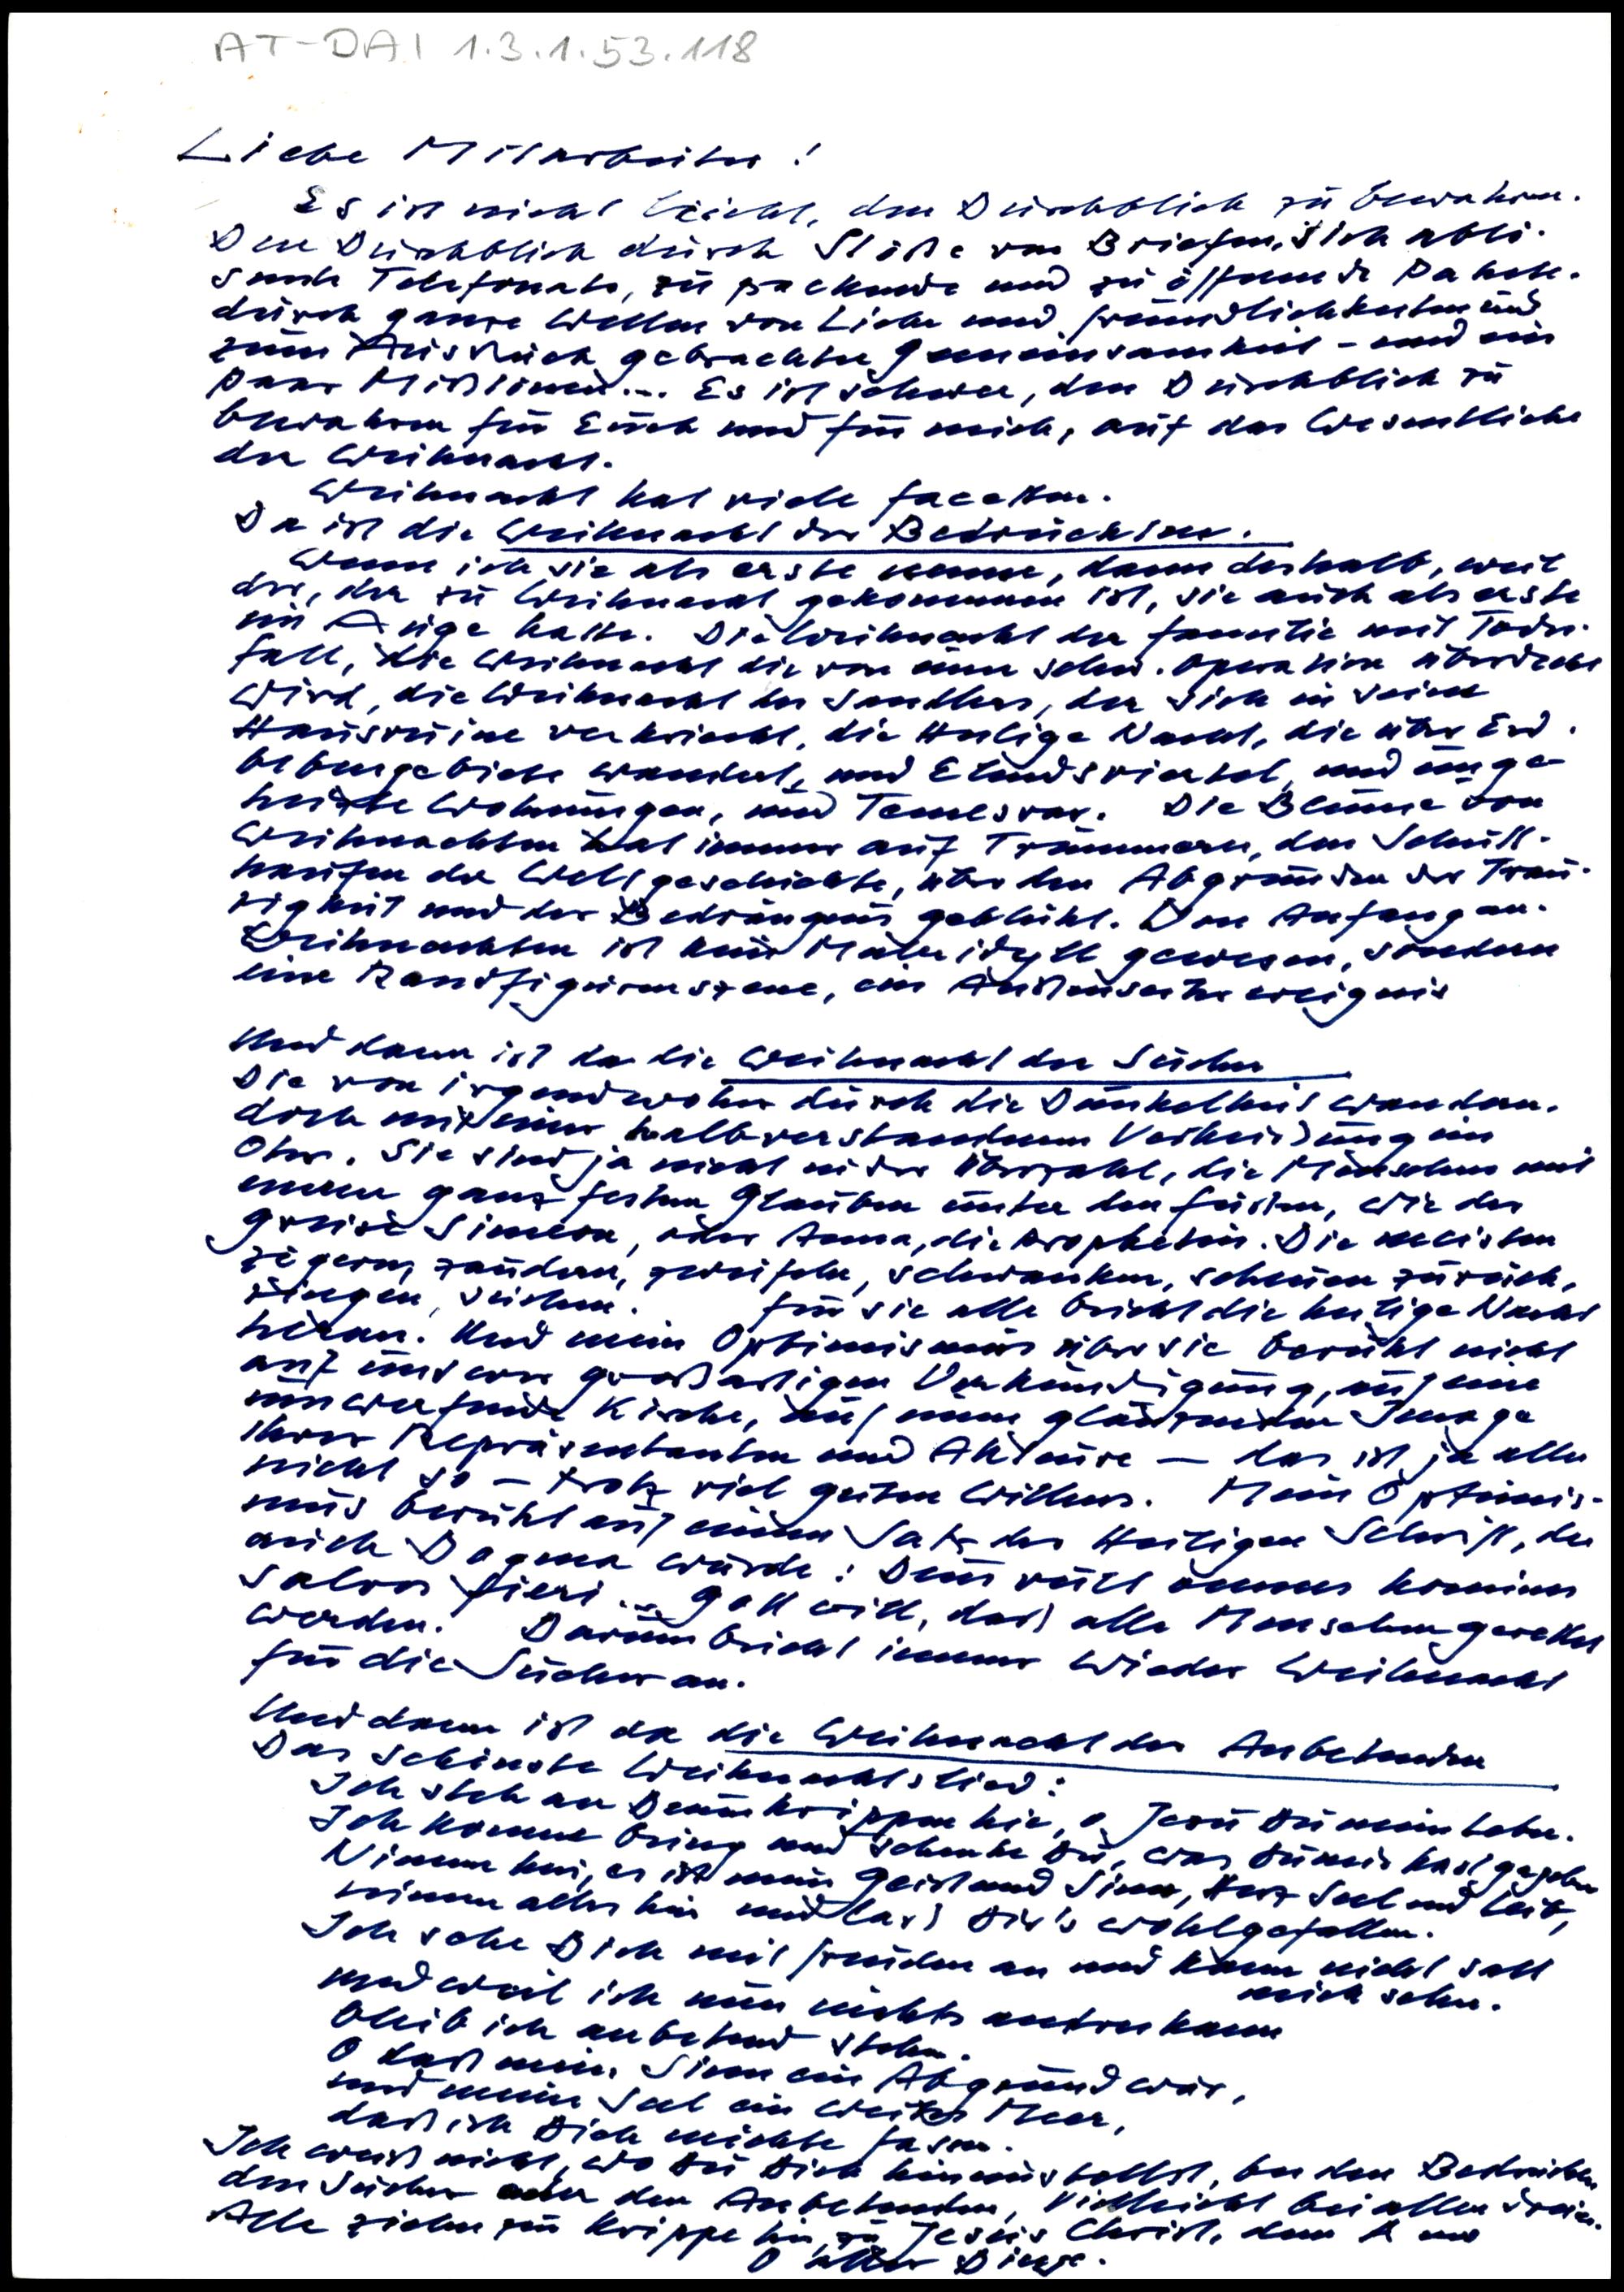 AT-DAI 1.3.1.53.118
Liebe Mitarbeiter!
Es ist nicht leicht, den Durchblick zu bewahren.
Den Durchblick durch Stöße von Briefen, sich ablö-
sende Telefonate, zu packende und zu öffnende Pakete.
durch ganze Wellen von Liebe und Freundlichkeiten und
zum Ausdruck gebrachter Gemeinsamkeit - und ein
paar Mißtönen... Es ist schwer, den Durchblick zu
bewahren für Euch und für mich, auf das Wesentliche
der Weihnacht.
Weihnacht hat viele Facetten.
Da ist die Weihnacht der Bedrückten.
Wenn ich sie als erste nenne, dann deshalb, weil
der, der zu Weihnacht gekommen ist, sie auch als erste
im Auge hatte. Die Weihnacht der Familie mit Todes-
fall, die Weihnacht die von einer schw. Operation überdeckt
wird, die Weihnacht des Sandlers, der sich in seine
Hausruine verkriecht, die Heilige Nacht, die über Erd-
bebengebiete wandert, und Elendsviertel, und unge-
heizte Wohnungen, und Temesvar. Die Blume von
Weihnachten hat immer auf Trümmern, den Schutt-
haufen der Weltgeschichte, über den Abgründen der Trau-
rigkeit und der Bedrängnis geblüht. Von Anfang an.
Weihnachten ist kein Maleridyll gewesen, sondern
eine Randfigurenszene, ein Außenseiterereignis
Und dann ist da die Weihnacht der Sucher
Die von irgendwoher durch die Dunkelheit wandern.
doch mit einer halbverstandenen Verheißung im
Ohr. Sie sind ja nicht in der Überzahl, die Menschen mit
einem ganz festen Glauben unter den Füßen, wie der
greise Simeon, oder Anna, die Prophetin. Die meisten
zögern, zaudern, zweifeln, schwanken, scheuen zurück,
ringen, suchen. Für sie alle bricht die heilige Nacht
heran. Und mein Optimismus über sie beruht nicht
auf unserer großartigen Verkündigung, auf eine
umwerfende Kirche, auf einem glänzenden Image
ihrer Repräsentanten und Akteure — das ist ja alles
nicht so — trotz viel guten Willens. Mein Optimis-
mus beruht auf einem Satz der Heiligen Schrift, der
auch Dogma wurde: Deus vult omnes homines
salvos fieri... Gott will, daß alle Menschen gerettet
werden. Darum bricht immer wieder Weihnacht
für die Sucher an.
Und dann ist da die Weihnacht der Anbetenden
Das schönste Weihnachtslied:
Ich steh an Deiner Krippen hie, o Jesu Du mein Leben.
Ich komme bring und schenke Dir, was Du mir hast gegeben
Nimm hin, es ist mein Geist und Sinn, Herz Seel und Leib,
nimm alles hin und laß Dir's wohlgefallen.
Ich sehe Dich mit Freuden an und kann nicht satt
mich sehn.
und weil ich nun nichts andres kann
bleib ich anbetend stehn.
O daß mein Sinn ein Abgrund wär,
und meine Seel ein weites Meer,
daß ich Dich möchte fassen.
Ich weiß nicht, wo Du Dich hinstellst, bei den Bedrückten
den Suchern oder den Anbetenden, Vielleicht bei allen dreien.
Alle ziehen zur Krippe hin, zu Jesus Christ, dem A und
O aller Dinge.